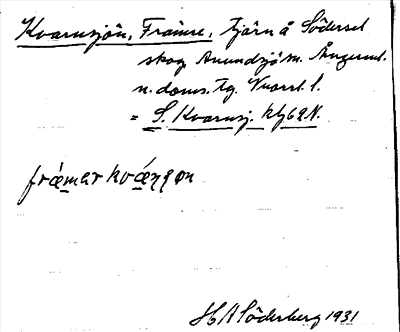 Kvarnsjön, Främre, tjärn å Södersel
skog Anundsjö sn. Ångerml.
n. doms. tg. Vnorrl. l.
= S. Kvarnsj. kbl 62 N.
frǽmar kvǽnɳon
H A Söderberg 1931